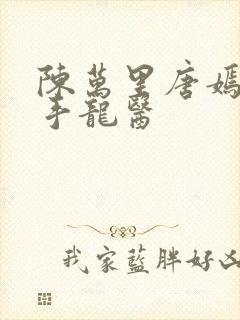 陳萬里唐嫣
手龍醫
我家藍胖好凶